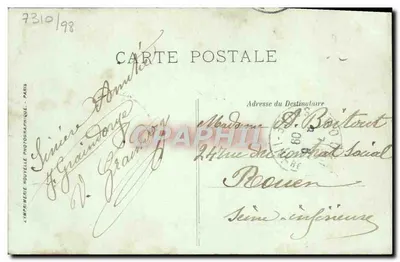 7310/98
CARTE POSTALE
Sincère Amitié
F. Graindorge
V. Graindorge
Adresse du Destinataire
Madame A. Boitout
24 rue du contrat Social
Rouen
Seine-inférieure
IMPRIMERIE NOUVELLE PHOTOGRAPHIQUE - PARIS
CPAPHIL.com